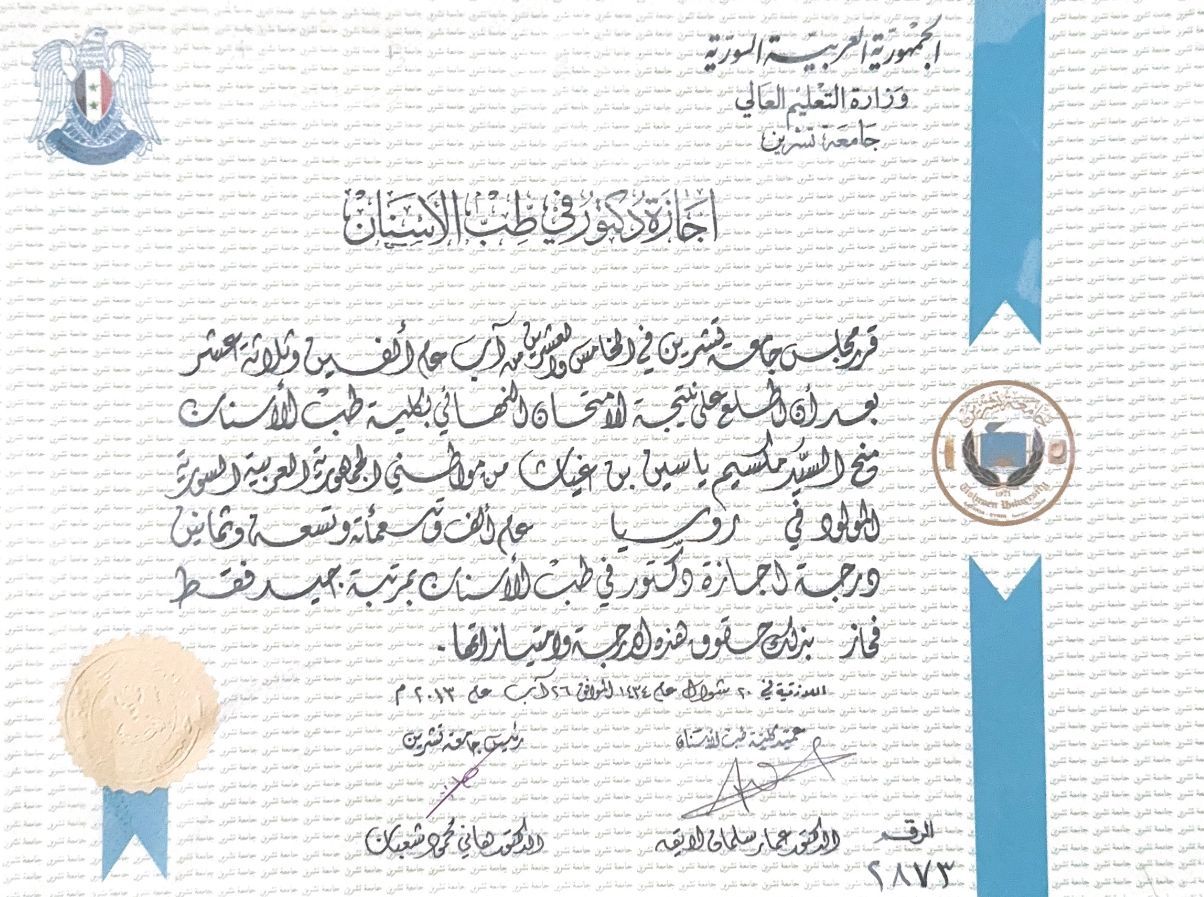 الجمهورية العربية السورية
وزارة التعليم العالي
جامعة تشرين
اجازة دكتور في طب الأسنان
قرر مجلس جامعة تشرين في الخامس والعشرين من آب عام ألفين وثلاثة عشر
بعد أن اطلع على نتيجة الامتحان النهائي بكلية طب الأسنان
منح السيد مكسيم ياسين بن غياث من مواطني الجمهورية العربية السورية
المولود في روسيا عام ألف وتسعمائة وتسعة وثمانين
درجة اجازة دكتور في طب الأسنان بمرتبة جيد فقط
فحاز بذلك حقوق هذه الدرجة وامتيازاتها.
اللاذقية في ٢٠ شوال عام ١٤٣٤ الموافق ٢٦ آب عام ٢٠١٣ م
عميد كلية طب الأسنان
رئيس جامعة تشرين
الدكتور عمار سلمان لايقه
الدكتور هاني محمود شعبان
الرقم
٢٨٧٣
جامعة تشرين
1971
Tishreen University